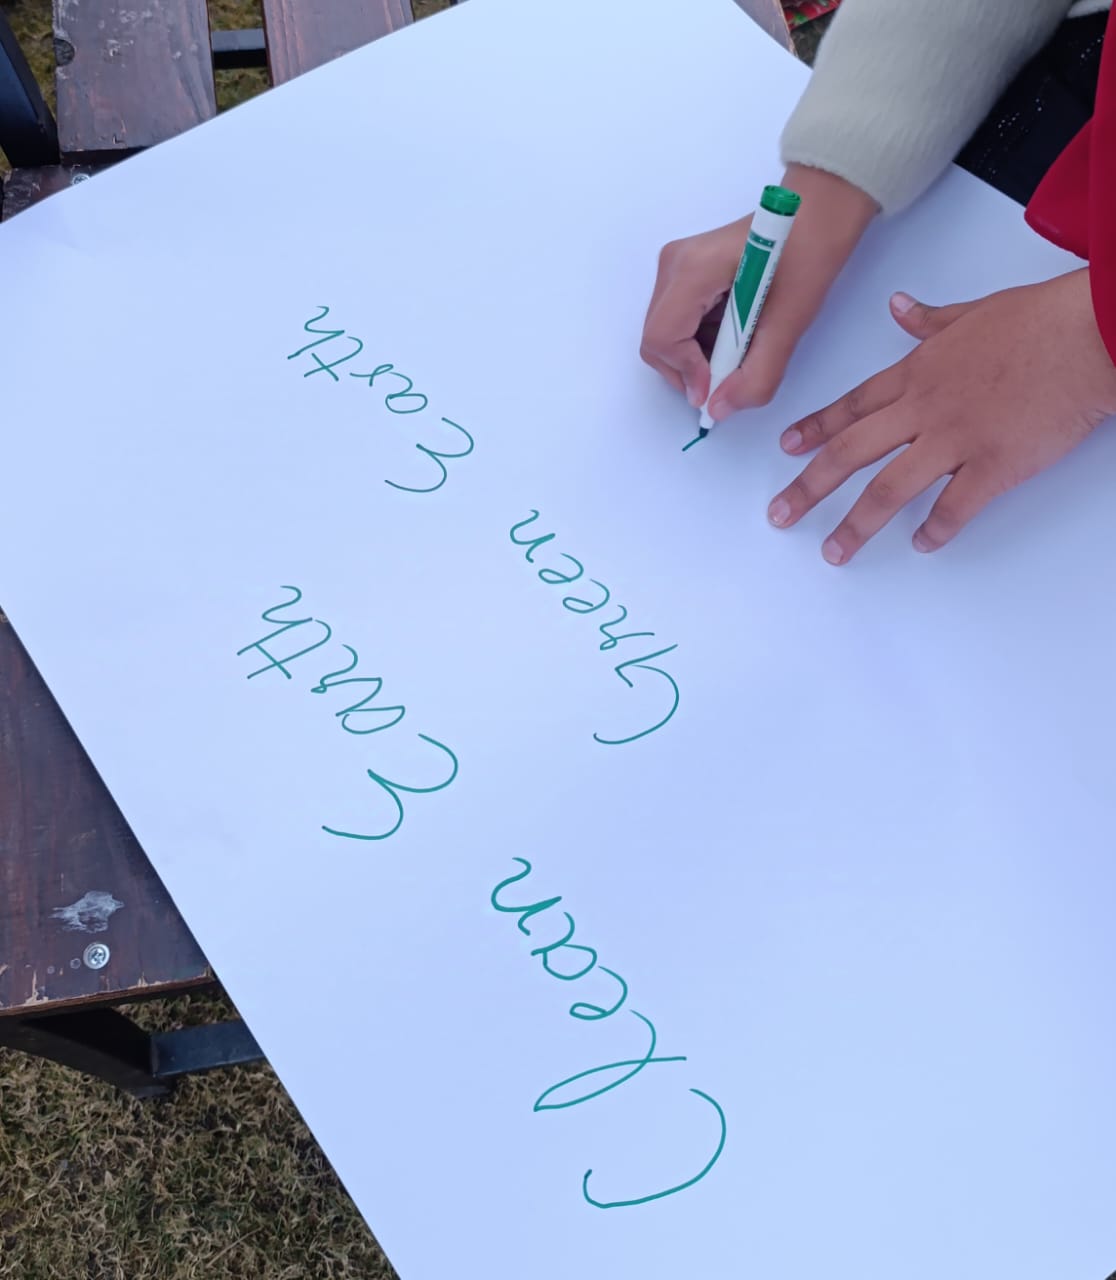 Clean Earth
Green Earth